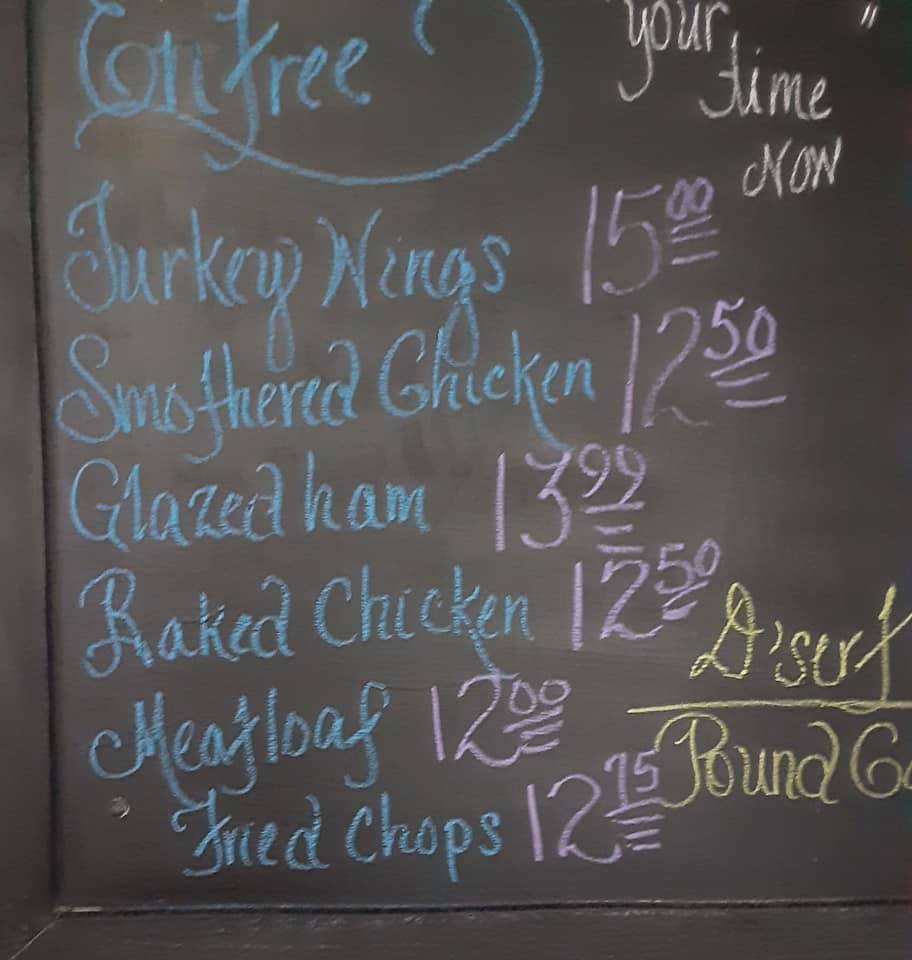 Entree
"your
time
Now
"
Turkey Wings 15.00
Smothered Chicken 12.50
Glazed ham 13.99
Baked Chicken 12.50
Meatloaf 12.00
Fried Chops 12.75
D'sert
Pound